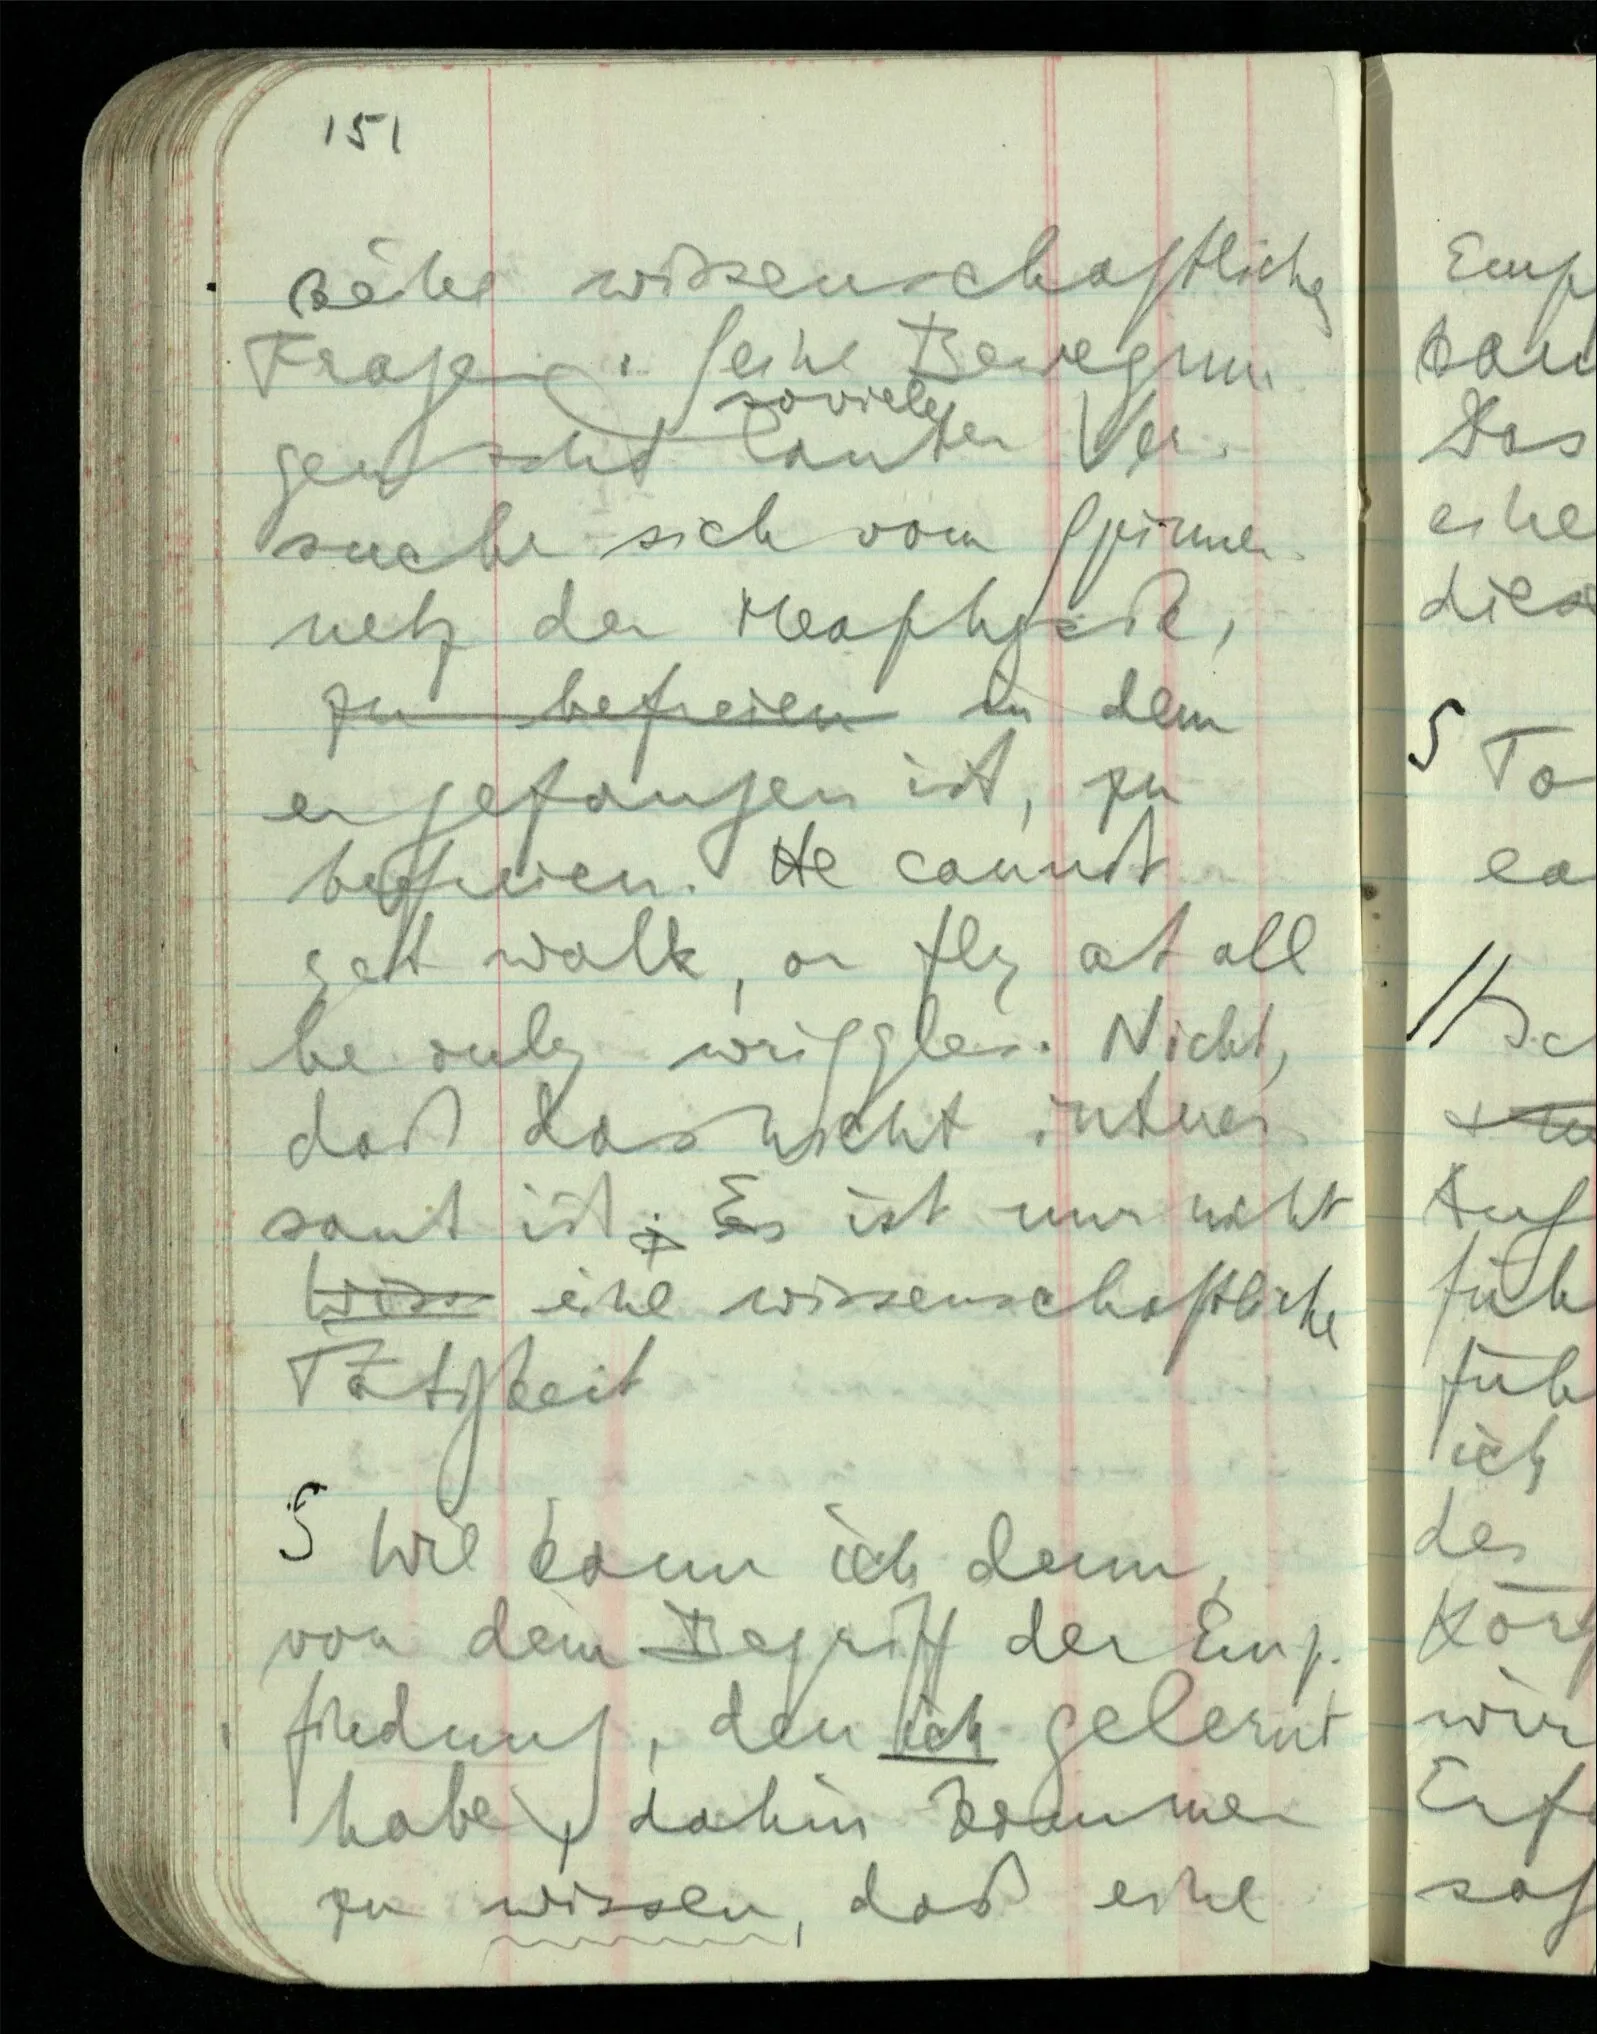 151
seine wissenschaftliche
Fragen. Seine Bewegun
soviele
gen sind lauter Ver-
suche sich vom Spinnen-
netz der Meaphysik,
zu befreien in dem
er gefangen ist, zu
befreien. He cannot
get walk, or fly at all
he only wriggles. Nicht,
daß das nicht interes-
sant ist; Es ist nur nicht
wiss eine wissenschaftliche
Tätigkeit
S Wie kann ich denn,
von dem Begriff der Emp-
findung, den ich gelernt
habe, dahin kommen
zu wissen, daß eine
Emp
Das
eine
S To
ea
füh
füh
ich
des
wir
Erfa
sag